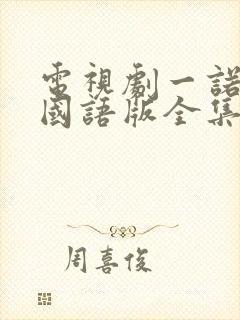 電視劇一諾
國語版全集
周喜俊